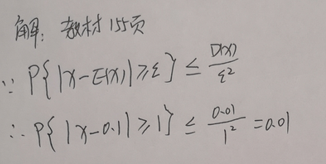 解：教材155页
∵ P{|x-E(x)|≥ε} ≤ D(x)/ε²
∴ P{|x-0.1|≥1} ≤ 0.01/1² =0.01